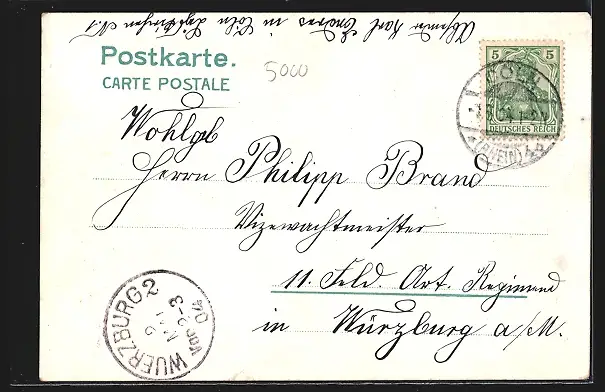 Absender Karl Endres in Cöln
Postkarte.
CARTE POSTALE
5000
5 5
DEUTSCHES REICH
CÖLN
(RHEIN)
Wohlgb
Herrn Philipp Brand
Vizewachtmeister
11. Feld. Art. Regiment
in Würzburg a/M.
WUERZBURG 2